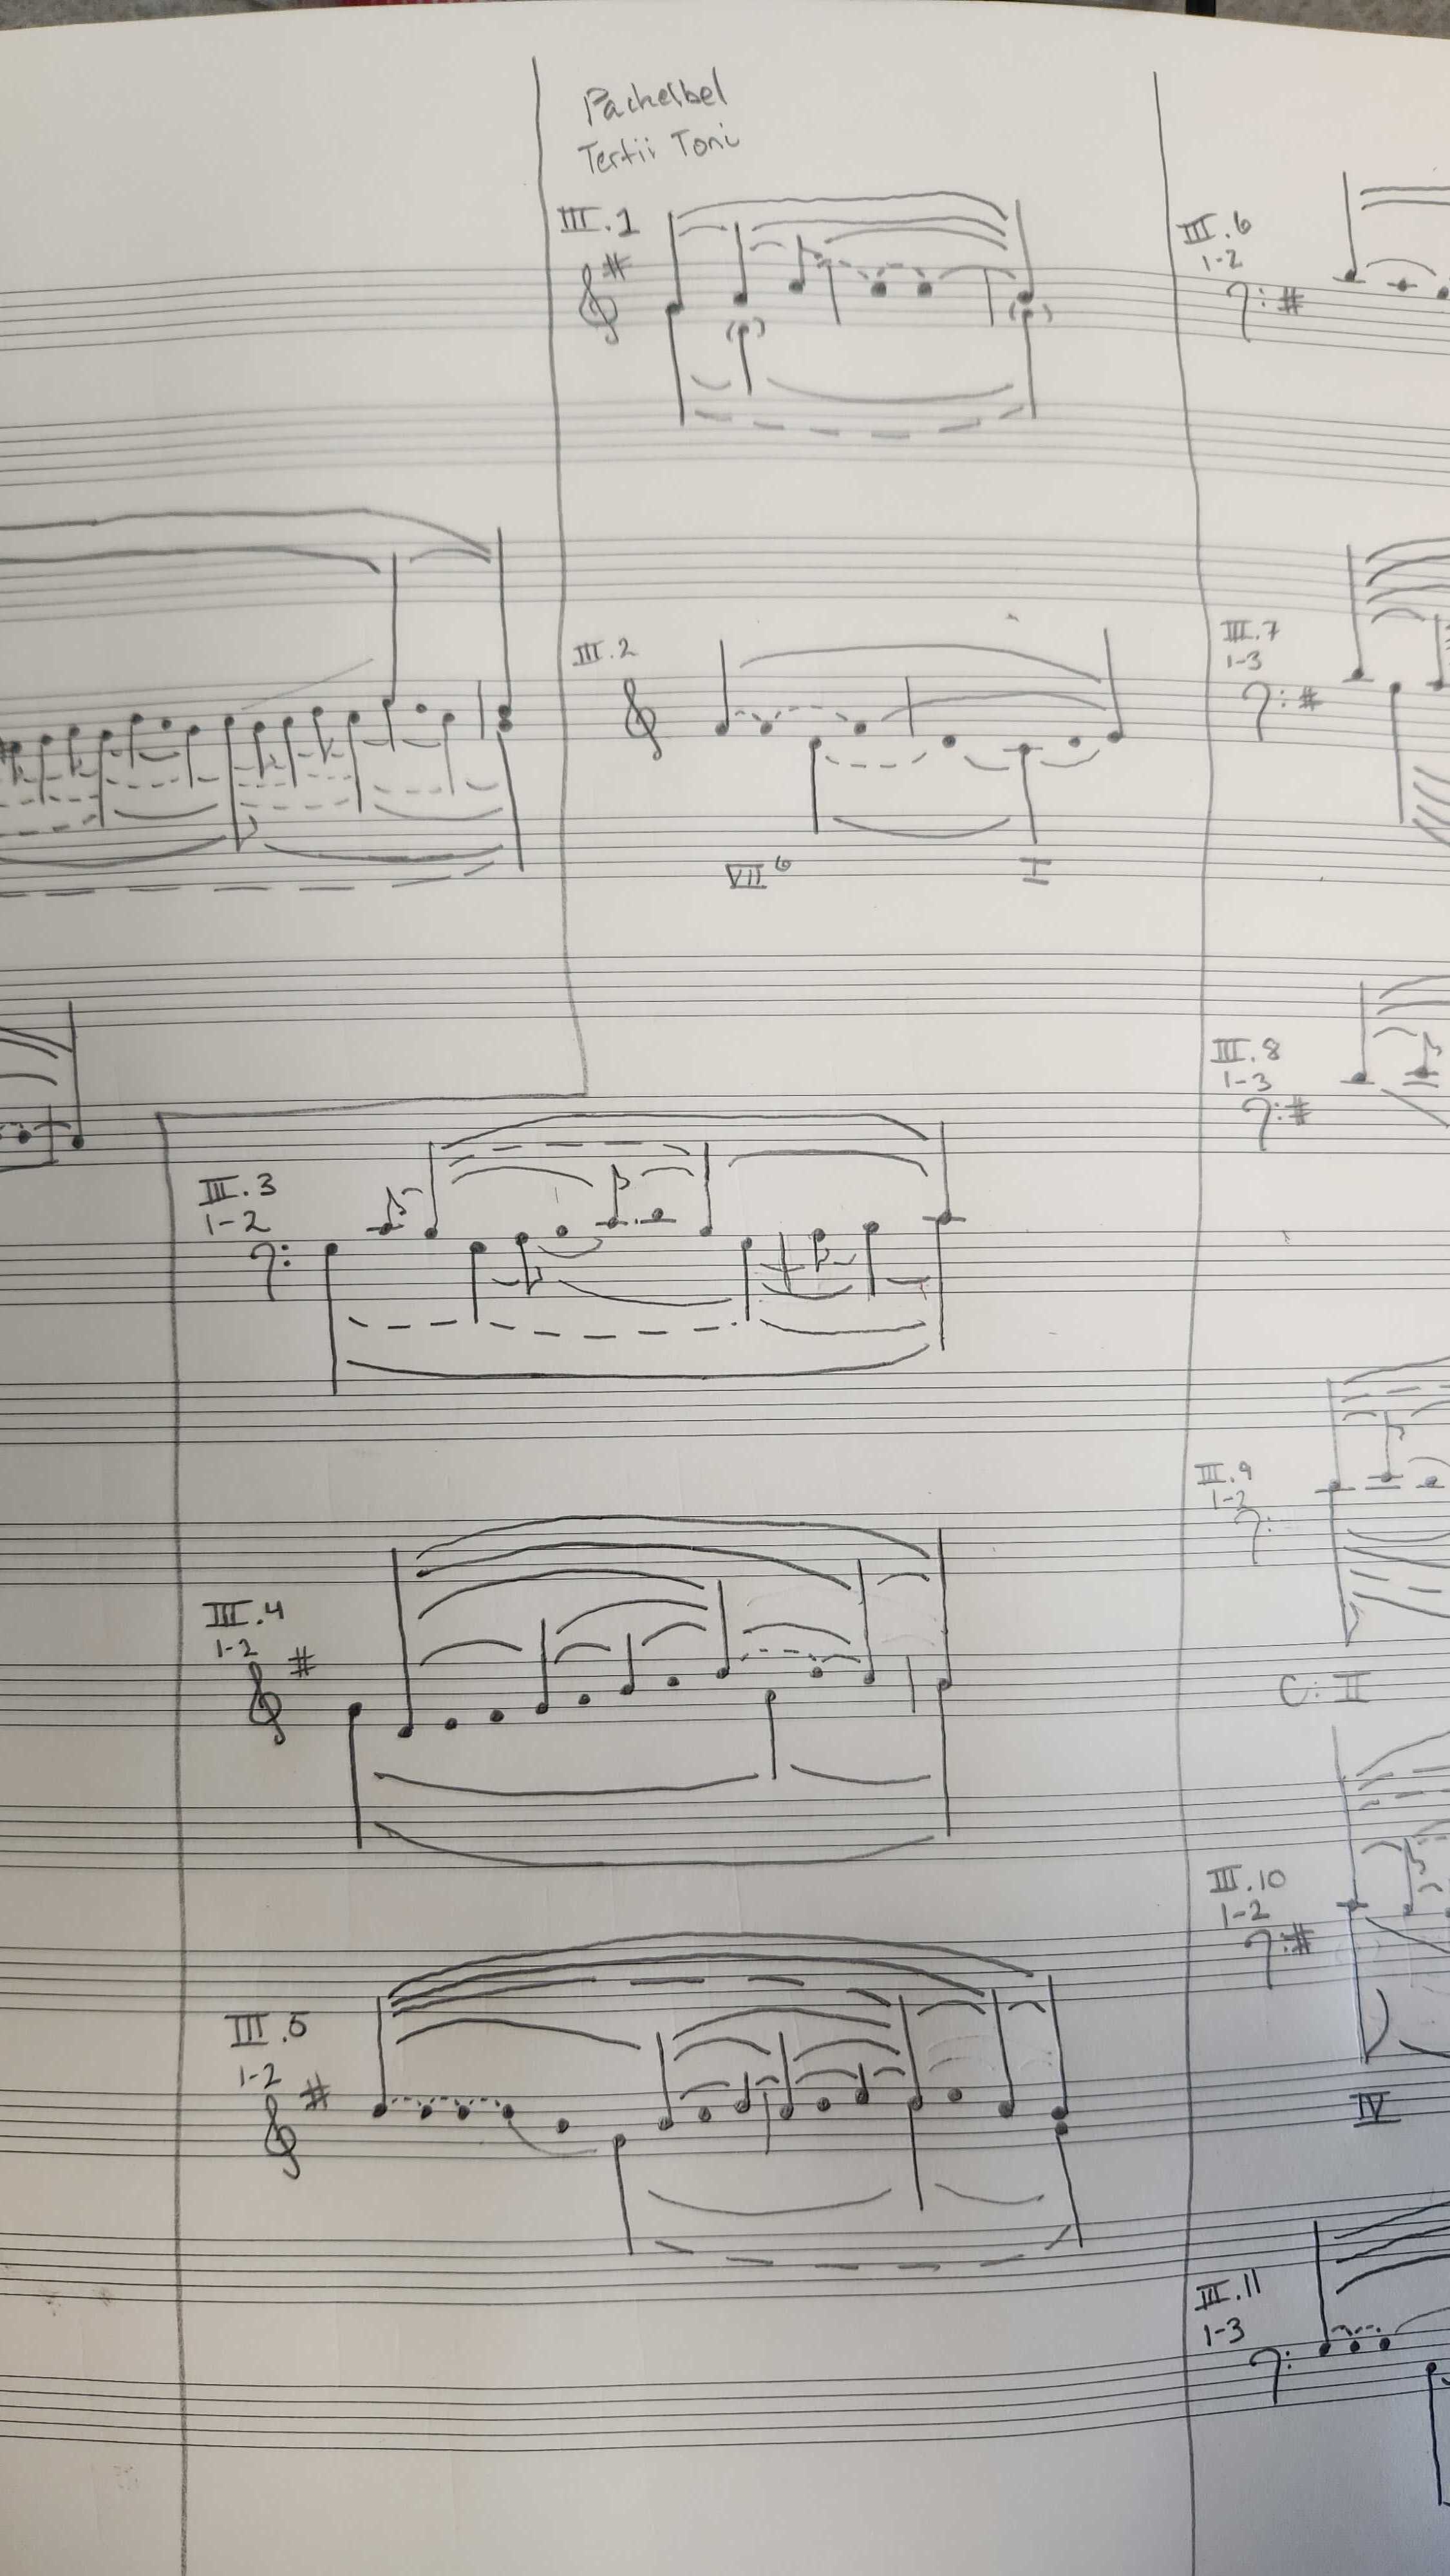 Pachelbel
Tertii Toni
III.1
III.2
VII6
I
III.3
1-2
III.4
1-2
III.5
1-2
III.6
1-2
III.7
1-3
III.8
1-3
III.9
1-2
C: II
III.10
1-2
IV
III.11
1-3